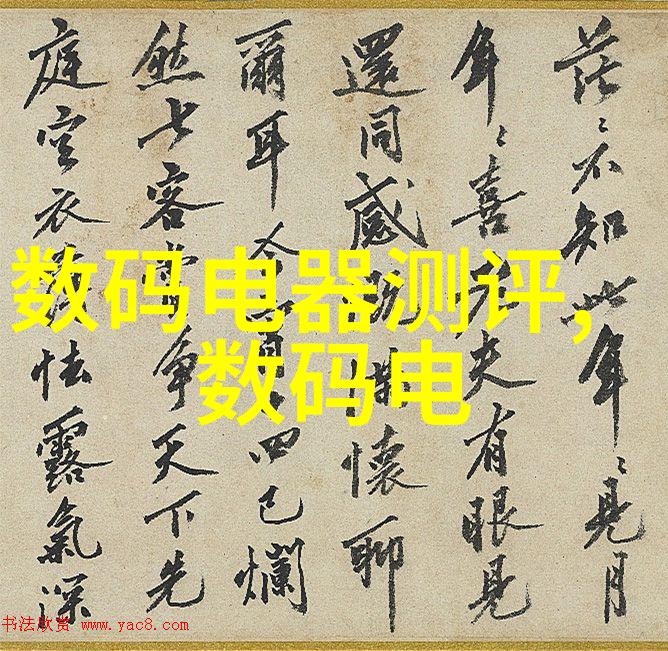 茫々不知此年々見月
年々喜夫有眼見
還同感懷聊
爾耳今四已爛
然七客争天下先
庭空衣怯露氣深
数码电器测评,
数码电
书法欣赏 www.yac8.com